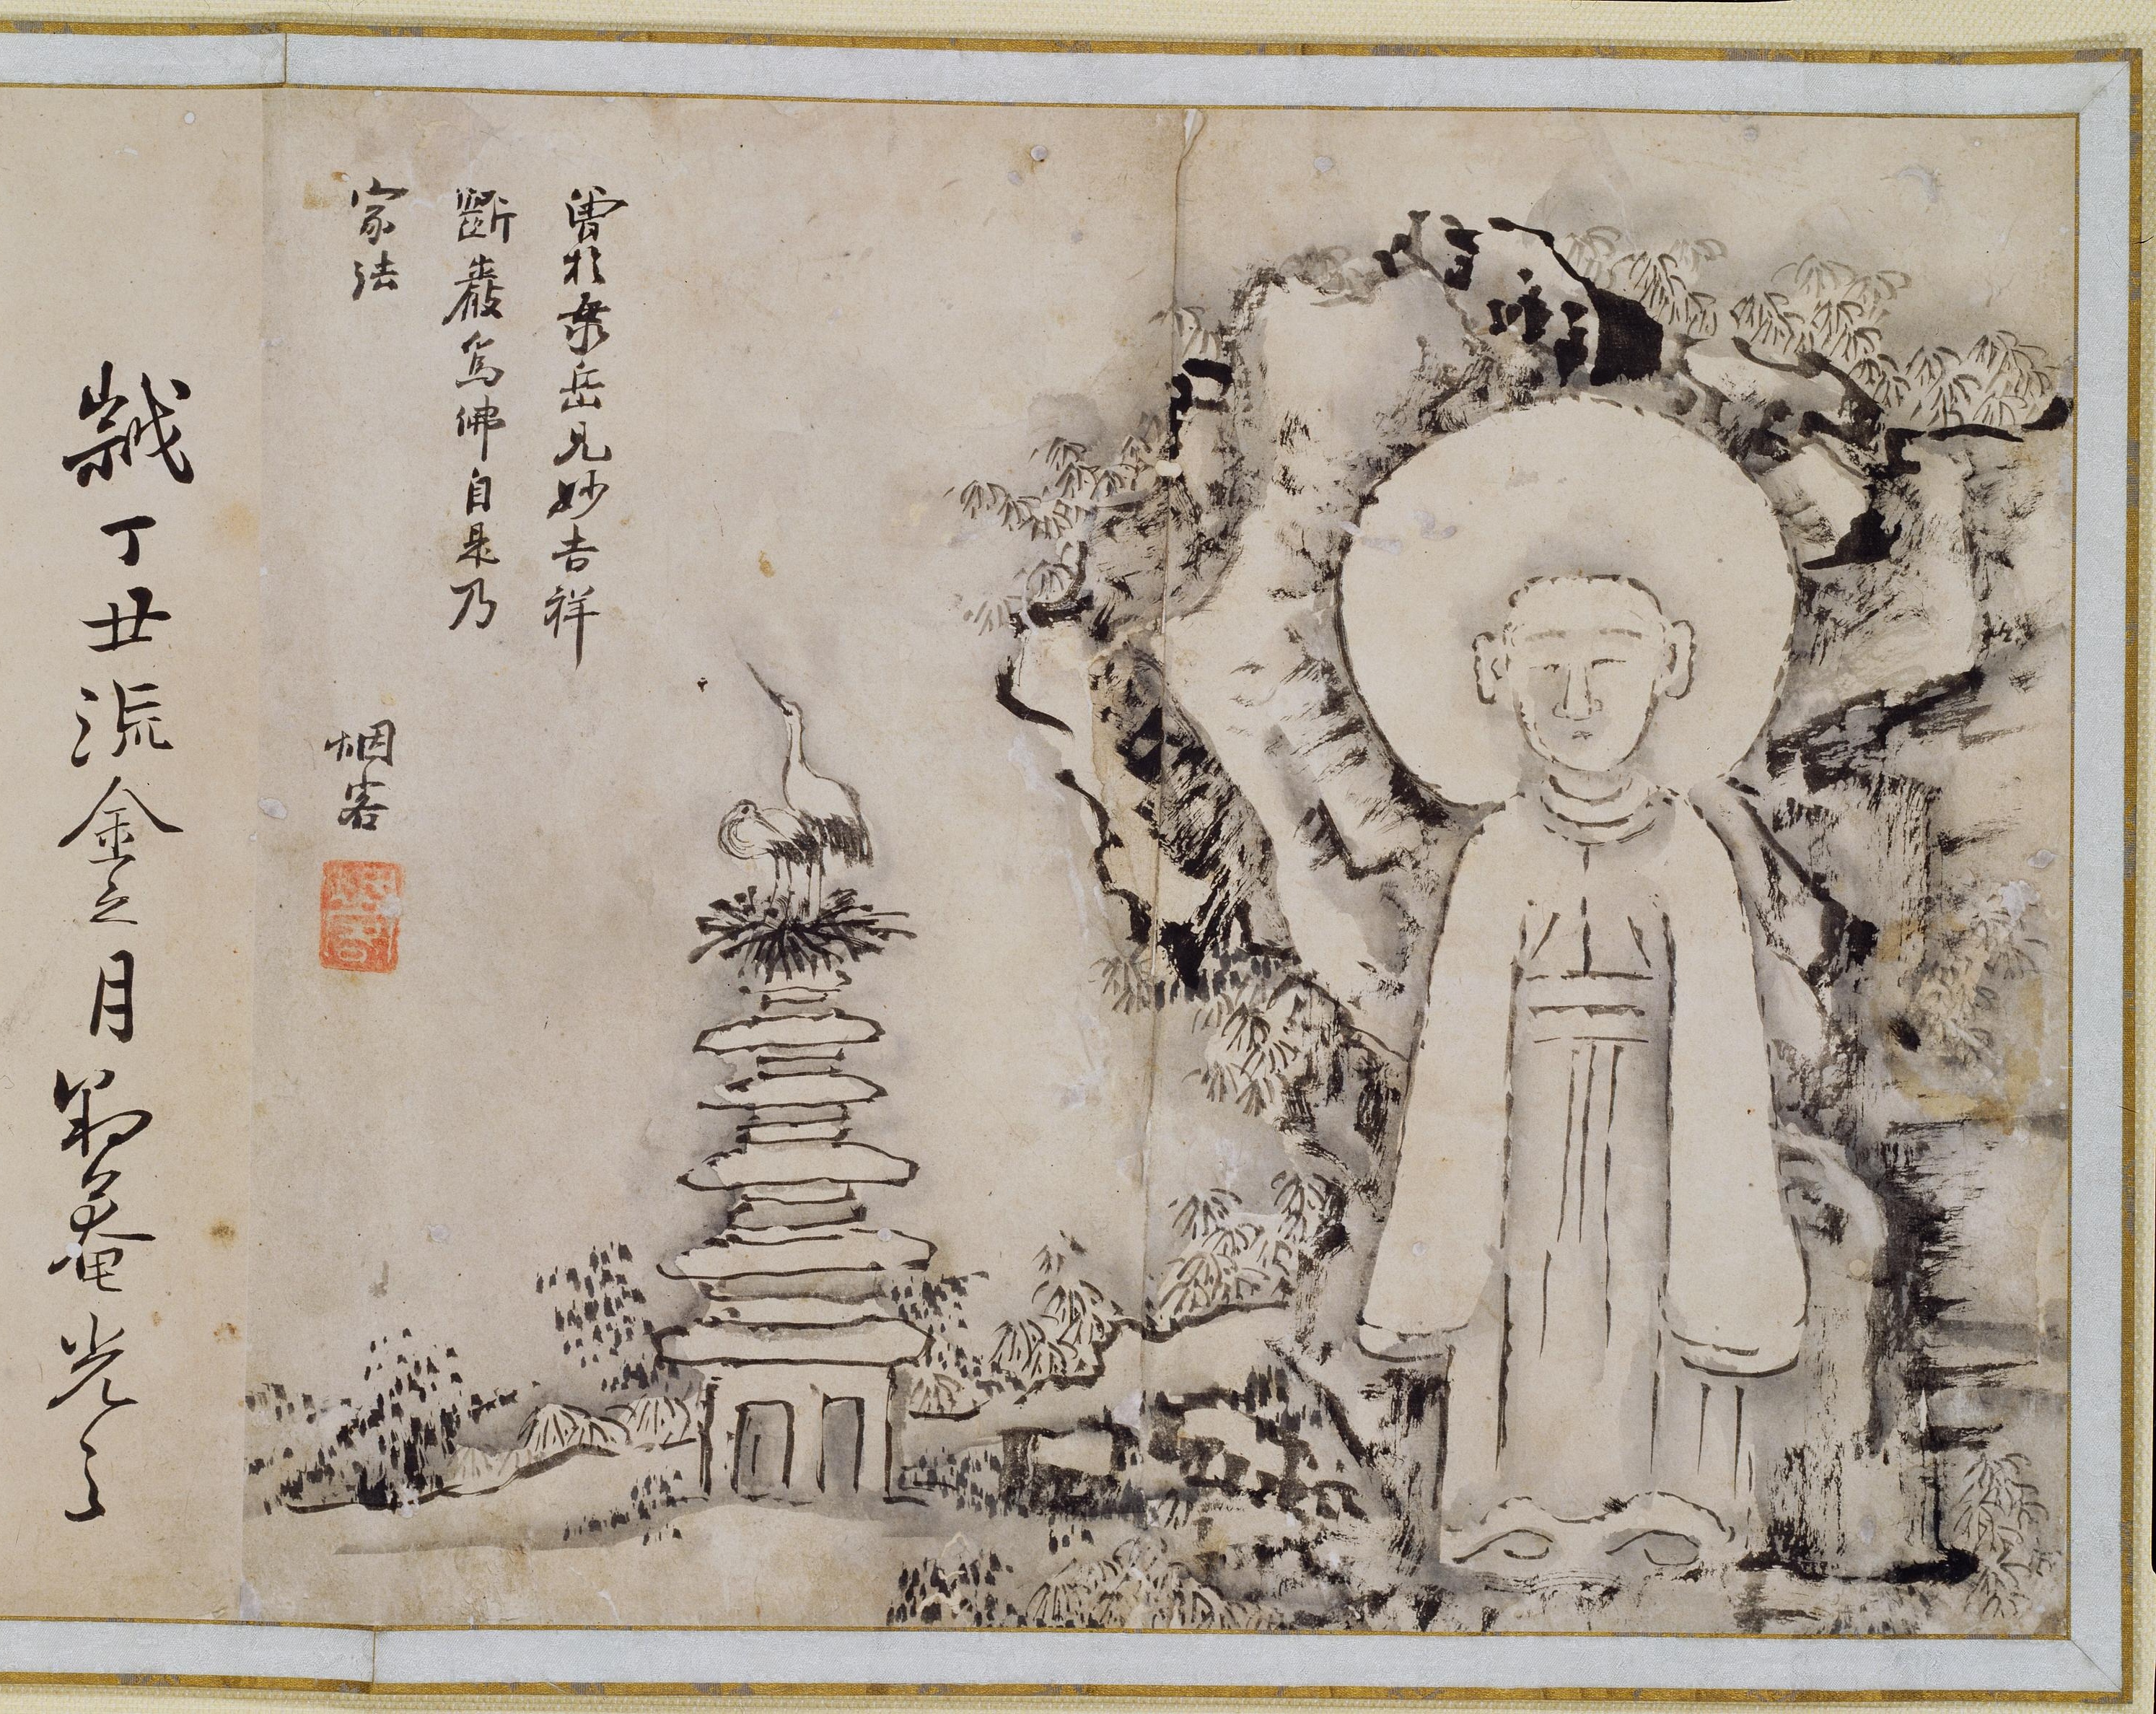 曾於楓岳見妙吉祥
斷巖爲佛自是乃
家法
烟客
歲丁丑流金之月豹菴光之